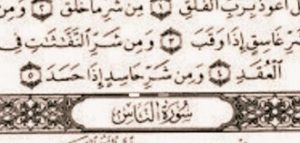 أَعُوذُ بِرَبِّ الْفَلَقِ ١ مِن شَرِّ مَا خَلَقَ ٢ وَمِن
غَاسِقٍ إِذَا وَقَبَ ٣ وَمِن شَرِّ النَّفَّٰثَٰتِ فِي
الْعُقَدِ ٤ وَمِن شَرِّ حَاسِدٍ إِذَا حَسَدَ ٥
سُورَةُ النَّاسِ